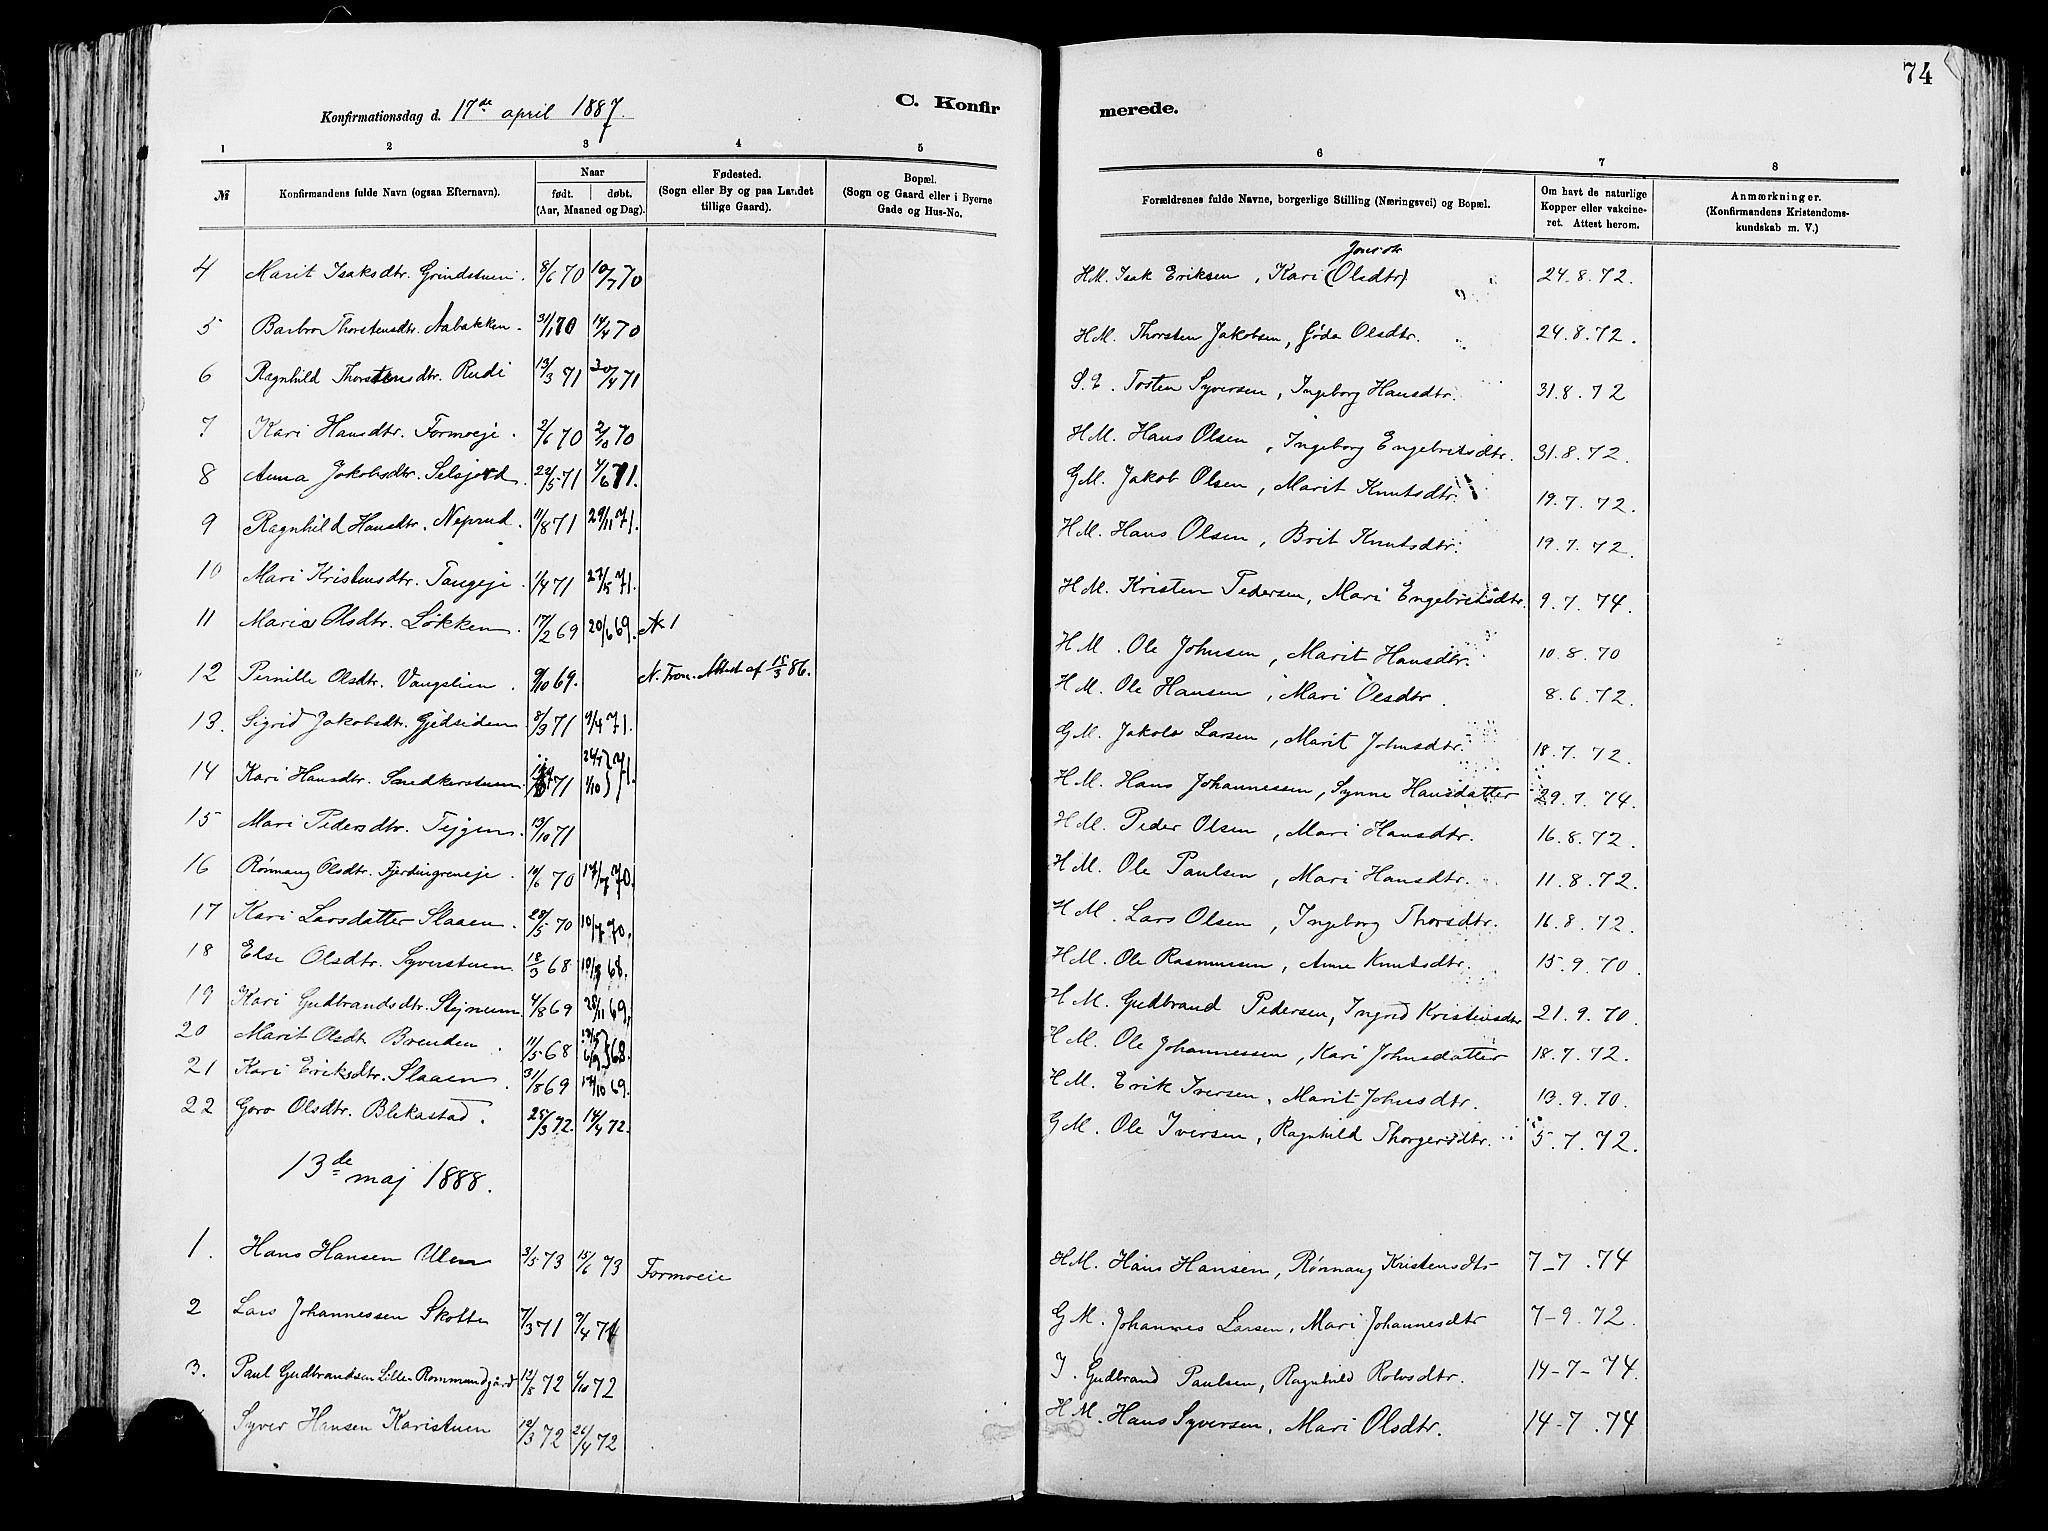 74
Konfirmationsdag d. 17de april 1887.
C. Konfirmerede.
1 2 3 4 5 6 7 8
№ Konfirmandens fulde Navn (ogsaa Efternavn). Naar født. døbt. (Aar, Maaned og Dag). Fødested. (Sogn eller By og paa Landet tillige Gaard). Bopæl. (Sogn og Gaard eller i Byerne Gade og Hus-No. Forældrenes fulde Navne, borgerlige Stilling (Næringsvei) og Bopæl. Om havt de naturlige Kopper eller vakcineret. Attest herom. Anmærkninger. (Konfirmandens Kristendomskundskab m. V.)
4 Marit Isaksdtr. Grindstuen. 8/6 70 10/7 70 H.M. Isak Eriksen, Kari (Olsdtr) 24.8.72.
5 Barbro Thorstensdtr. Aabakken. 31/1 70 14/4 70 H.M. Thorsten Jakobsen, Goda Olsdtr. 24.8.72.
6 Ragnhild Thorstensdtr. Rudi 13/3 71 30/4 71 Tosten Syversen, Ingeborg Hansdtr. 31.8.72
7 Kari Hansdtr. Formoeje. 2/6 70 70 H.M. Hans Olsen, Ingeborg Engebritsdtr. 31.8.72.
8 Anna Jakobsdtr. Selsjord. 22/5 71 4/6 71. G.M. Jakob Olsen, Marit Knutsdtr. 19.7.72.
9 Ragnhild Hansdtr. Neprud. 11/8 71 29/11 71. H.M. Hans Olsen, Brit Knutsdtr. 19.7.72.
10 Mari Kristensdtr. Tangeje. 1/4 71 27/5 71. H.M. Kristen Pedersen, Mari Engebritsdtr. 9.7.74.
11 Maria Olsdtr. Løkken. 17/2 69 20/6 69. H.M. Ole Johnsen, Marit Hansdtr. 10.8.70
12 Pernille Olsdtr. Vangslien. 9/10 69. N. Fron. Attest af 15/3 86. H.M. Ole Hansen, Mari Olsdtr. 8.6.72.
13. Sigrid Jakobsdtr. Gjedsiden 8/3 71 9/4 71. G.M. Jakob Larsen, Marit Johnsdtr. 18.7.72.
14 Kari Hansdtr. Smedkerstuen. 71 1/10 71. H.M. Hans Johannessen, Synne Hansdatter 29.7.74.
15 Mari Pedersdtr. Tejgen. 13/10 71 H.M. Peder Olsen, Mari Hansdtr. 16.8.72.
16 Rønnaug Olsdtr. Fjerdingreneje. 14/6 70 17/7 70. H.M. Ole Paulsen, Mari Hansdtr. 11.8.72.
17 Kari Larsdatter Slaaen. 28/5 70 10/7 70. H.M. Lars Olsen, Ingeborg Thorsdtr. 16.8.72.
18 Else Olsdtr. Syverstuen 18/3 68 68. H.M. Ole Rasmussen, Anne Knutsdtr. 15.9.70.
19 Kari Gudbrandsdtr. Stejneum. 4/8 69 28/11 69. H.M. Gudbrand Pedersen, Ingrid Kristensdtr 21.9.70.
20 Marit Olsdt Brenden. 11/5 68 68. H.M. Ole Johannessen, Kari Johnsdatter 18.7.72.
21 Kari Eriksdtr. Slaaen. 31/8 69 17/10 69. H.M. Erik Iversen, Marit Johnsdtr. 13.9.70.
22 Goro Olsdtr. Blekastad. 25/3 72. 14/4 72. G.M. Ole Iversen, Ragnhild Thorgersdtr. 5.7.72.
13de maj 1888.
1. Hans Hansen Ulen 3/5 73 15/6 73 Formoeie H.M. Hans Hansen, Rønnaug Kristensdtr 7-7.74
2 Lars Johannessen Skotte 7/3 71 9/4 71 G.M. Johannes Larsen, Mari Johannesdtr 7-9.72.
3. Paul Gudbrandsen Lille Rommundgård 12/5 72 6/10 72 I. Gudbrand Paulsen, Ragnhild Rolvsdtr. 14-7-74.
Syver Hansen Karistuen 19/3 72 26/4 72 H.M. Hans Syversen, Mari Olsdtr. 14-7.74